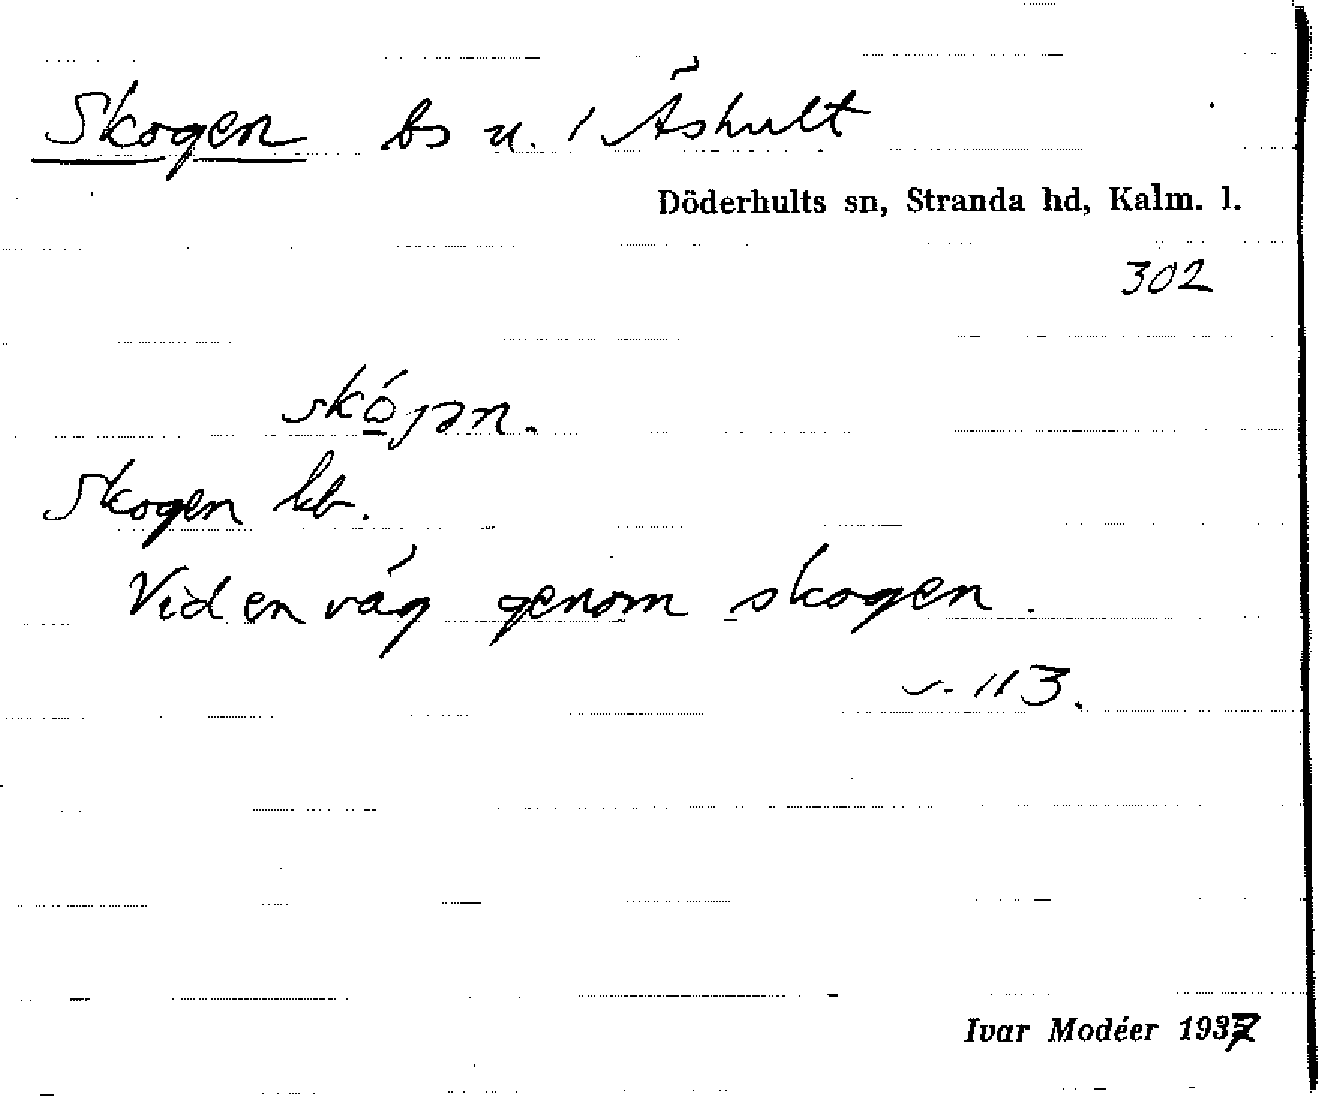 Skogen bs u. / Äshult
Döderhults sn, Stranda hd, Kalm. l.
302
skó̲jən.
Skogen kb.
Vid en väg genom skogen.
s. 113.
Ivar Modéer 1937